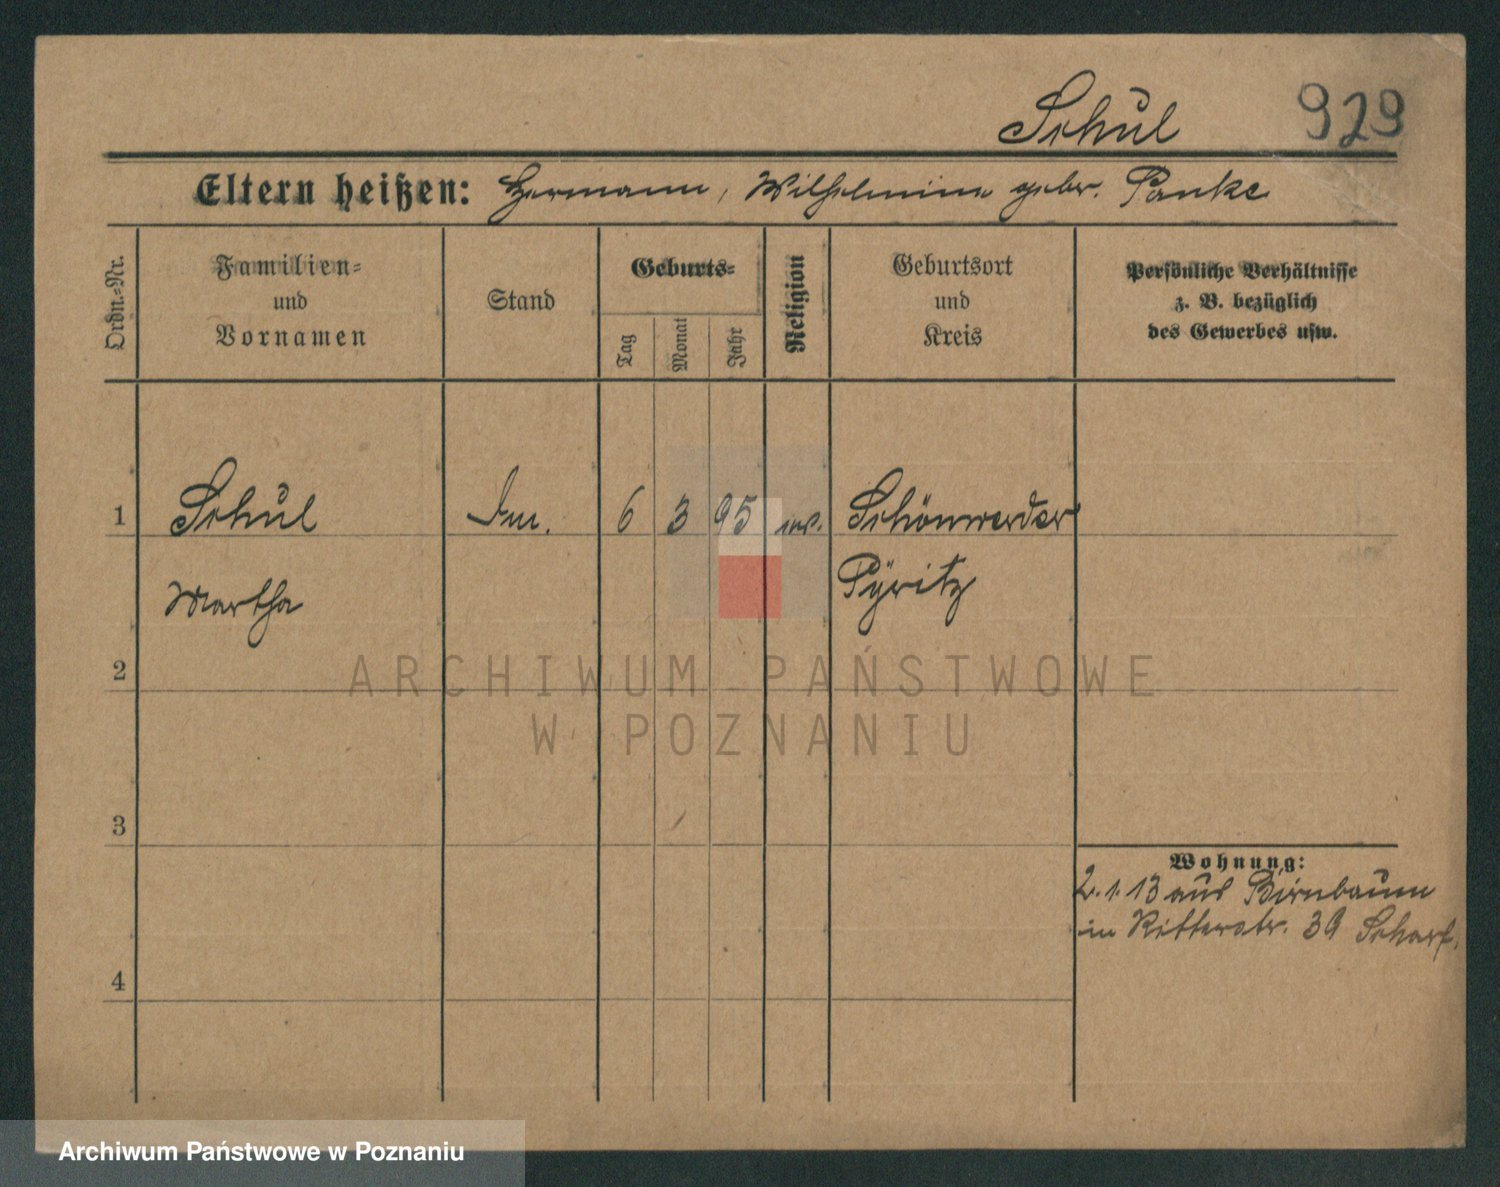 Schul 929
Eltern heißen: Hermann, Wilhelmine gebr. Panke
Ordn.-Nr.
Familien-
und
Vornamen
Stand
Geburts-
Tag
Monat
Jahr
Religion
Geburtsort
und
Kreis
Persönliche Verhältnisse
z. B. bezüglich
des Gewerbes usw.
1 Schul 6 3 95 ev. Schönwerder
Martha Pyritz
2
3
4
Wohnung:
2.1.13 aus Birnbaum
in Ritterstr. 39 Scharf.
ARCHIWUM PAŃSTWOWE
W POZNANIU
Archiwum Państwowe w Poznaniu